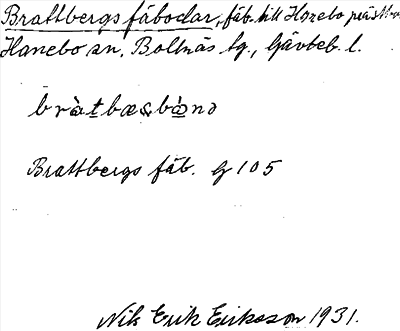 Brattbergs fäbodar, fäb. till Hanebo präst
Hanebo sn, Bollnäs tg., Gävleb. l.
bràtbæsbònə
Brattbergs fäb. G 105
Nik Erik Eriksson 1931.